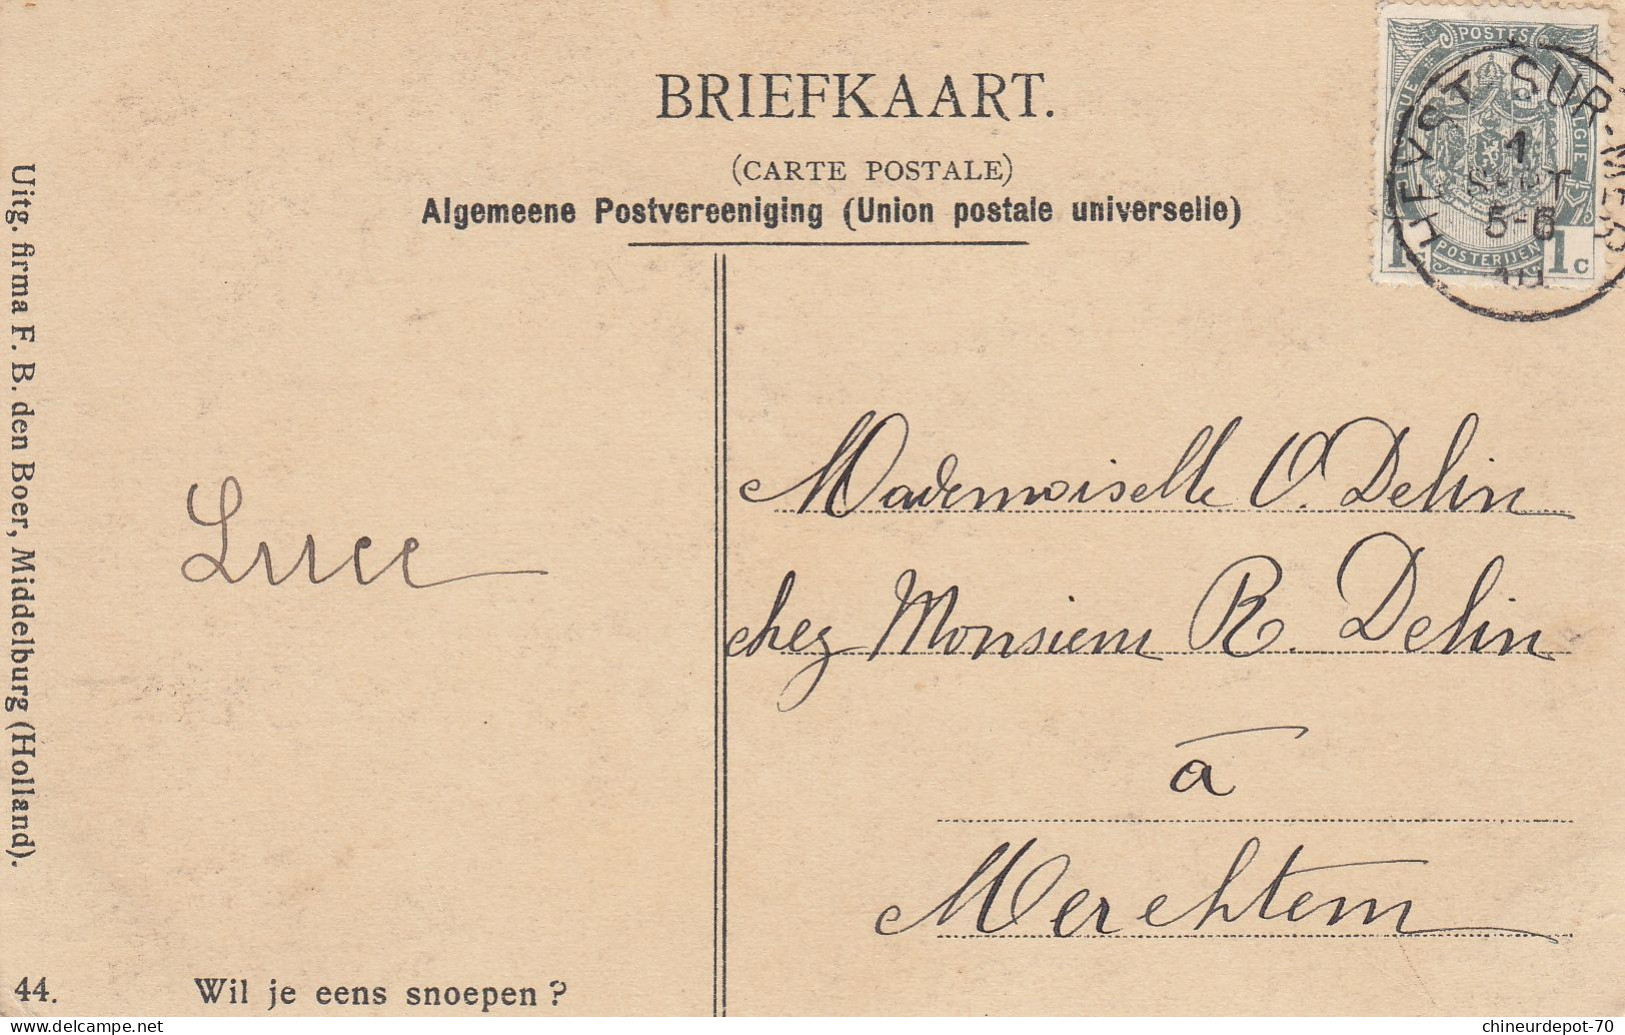 BRIEFKAART.
(CARTE POSTALE)
Algemeene Postvereeniging (Union postale universelle)
POSTES
POSTERIJEN
1 1c
HEYST SUR-MER
1
SEPT
5-6
Uitg. firma F. B. den Boer, Middelburg (Holland).
Luce
Mademoiselle O. Delin
chez Monsieur R. Delin
à
Merchtem
44. Wil je eens snoepen ?
delcampe.net
chineurdepot-70